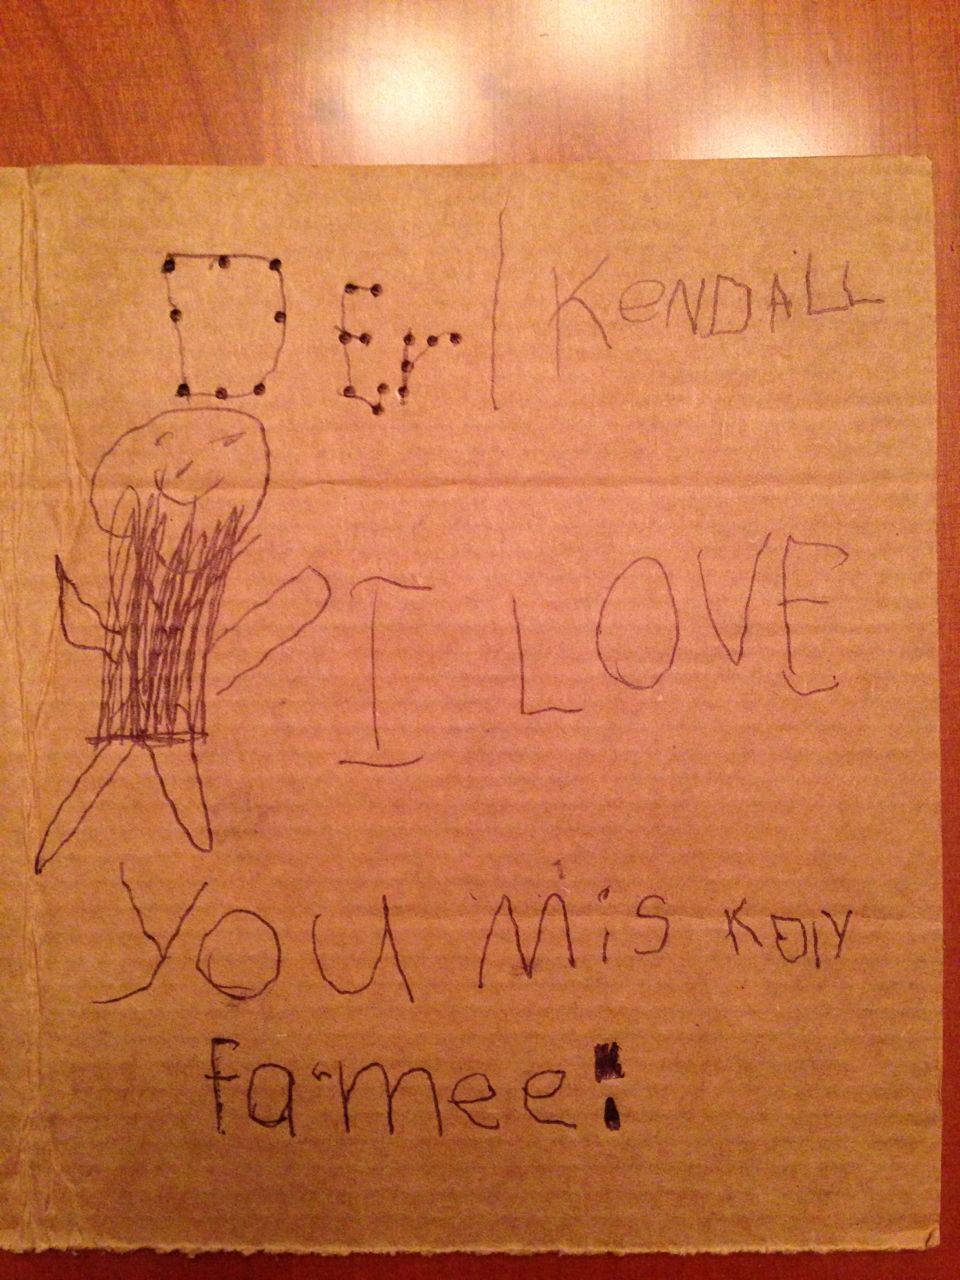 DEr KeNDALL
I LOVE
YOU Mis
famee!